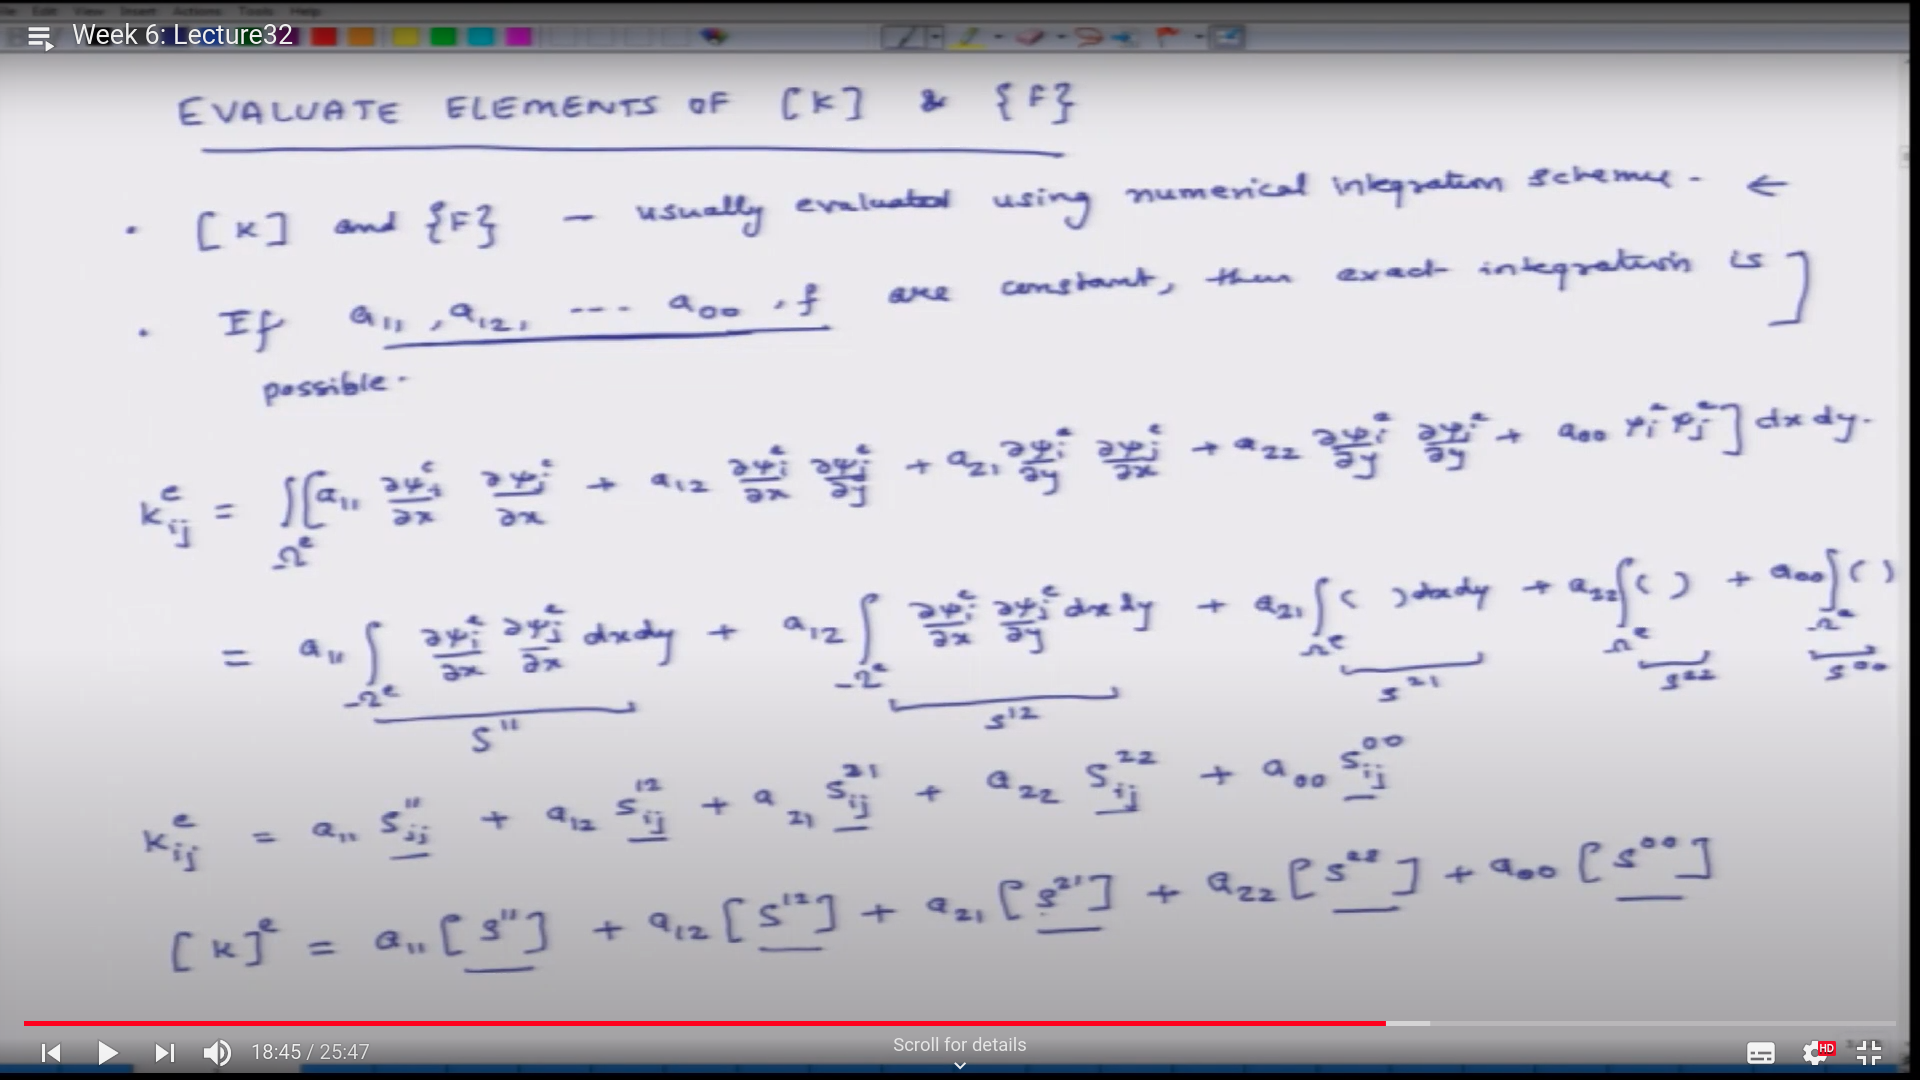 File Edit View Insert Actions Tools Help
Week 6: Lecture32
EVALUATE ELEMENTS OF [K] & {F}
• [K] and {F} – usually evaluated using numerical integration scheme. ←
• If a₁₁, a₁₂, ---- a₀₀, f are constant, then exact integration is ]
possible.
kᵢⱼᵉ = ∫[a₁₁ ∂ψᵢᵉ/∂x ∂ψⱼᵉ/∂x + a₁₂ ∂ψᵢᵉ/∂x ∂ψⱼᵉ/∂y + a₂₁ ∂ψᵢᵉ/∂y ∂ψⱼᵉ/∂x + a₂₂ ∂ψᵢᵉ/∂y ∂ψⱼᵉ/∂y + a₀₀ ψᵢᵉ ψⱼᵉ] dx dy.
Ωᵉ
= a₁₁ ∫ ∂ψᵢᵉ/∂x ∂ψⱼᵉ/∂x dxdy + a₁₂ ∫ ∂ψᵢᵉ/∂x ∂ψⱼᵉ/∂y dx dy + a₂₁ ∫ ( ) dxdy + a₂₂ ∫ ( ) + a₀₀ ∫ ( )
Ωᵉ Ωᵉ Ωᵉ Ωᵉ Ωᵉ
S¹¹ S¹² S²¹ S²² S⁰⁰
kᵢⱼᵉ = a₁₁ Sᵢⱼ¹¹ + a₁₂ Sᵢⱼ¹² + a₂₁ Sᵢⱼ²¹ + a₂₂ Sᵢⱼ²² + a₀₀ Sᵢⱼ⁰⁰
[K]ᵉ = a₁₁ [S¹¹] + a₁₂ [S¹²] + a₂₁ [S²¹] + a₂₂ [S²²] + a₀₀ [S⁰⁰]
18:45 / 25:47
Scroll for details
HD